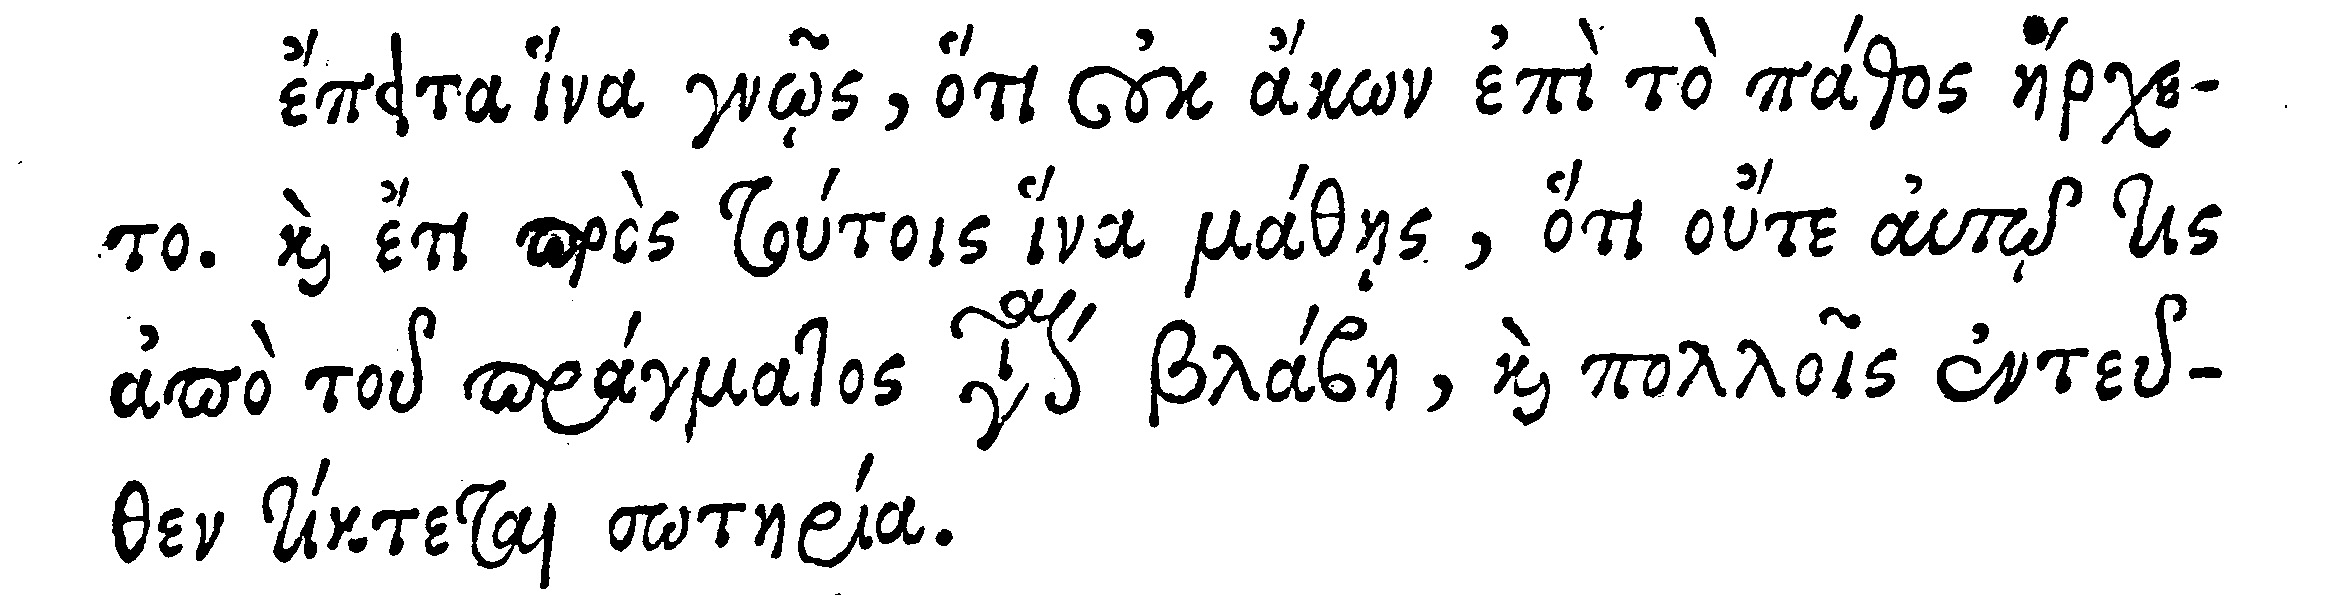 ἔπειτα ἵνα γνῷς, ὅτι οὐκ ἄκων ἐπὶ τὸ πάθος ἤρχε-
το. καὶ ἔτι πρὸς τούτοις ἵνα μάθῃς, ὅτι οὔτε αὐτῷ τις
ἀπὸ τοῦ πράγματος βλάβη, καὶ πολλοῖς ἐντεῦ-
θεν τίκτεται σωτηρία.